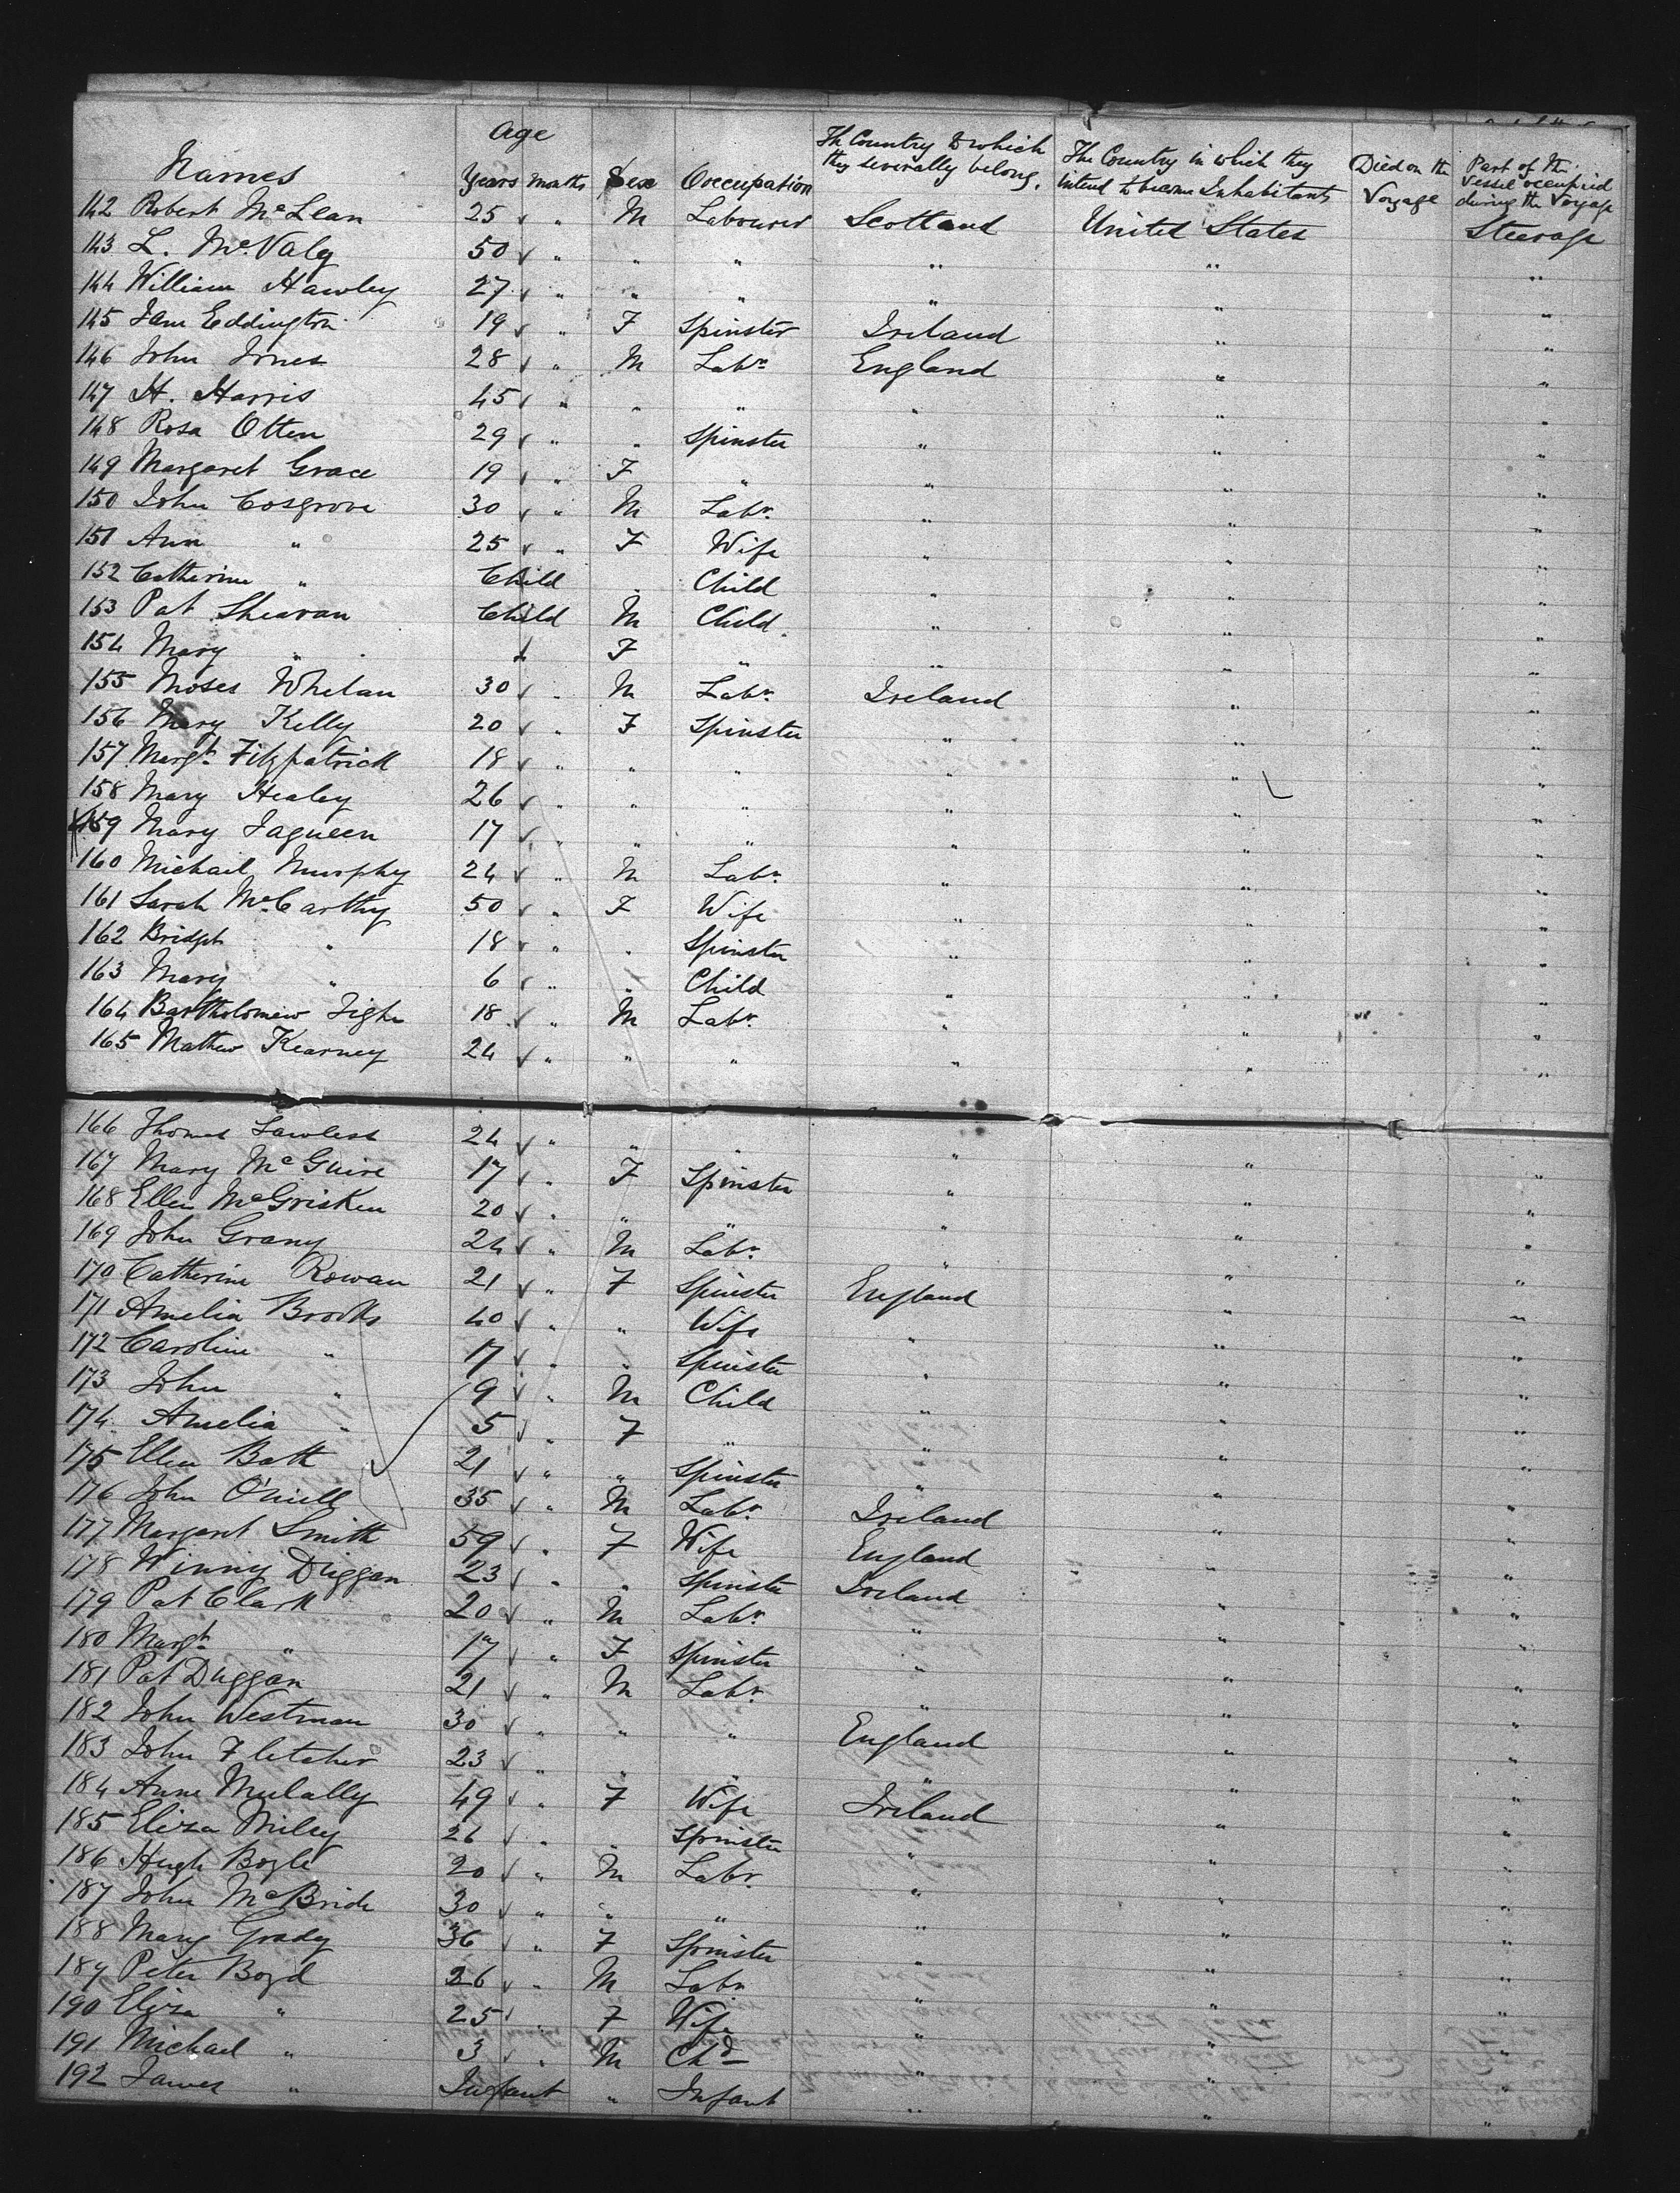 Names Age Years Months Sex Occupation The Country to which they severally belong. The Country in which they intend to become Inhabitants Died on the Voyage Part of the Vessel occupied during the Voyage
142 Robert McLean 25 " M Labourer Scotland United States Steerage
143 L. McValy 50 " " " " " "
144 William Hawley 27 " " " " " "
145 Jane Eddington 19 " F Spinster Ireland " "
146 John Jones 28 " M Labr England " "
147 H. Harris 45 " " " " " "
148 Rosa Otten 29 " " Spinster " " "
149 Margaret Grace 19 " F " " " "
150 John Cosgrove 30 " M Labr " " "
151 Ann " 25 " F Wife " " "
152 Catherine " Child " Child " " "
153 Pat Sheavan Child M Child " " "
154 Mary " F " " " "
155 Moses Whelan 30 " M Labr Ireland " "
156 Mary Kelly 20 " F Spinster " " "
157 Margt Fitzpatrick 18 " " " " " "
158 Mary Healey 26 " " " " " "
159 Mary Jagueen 17 " " " " " "
160 Michael Murphy 24 " M Labr " " "
161 Sarah McCarthy 50 " F Wife " " "
162 Bridget " 18 " " Spinster " " "
163 Mary " 6 " " Child " " "
164 Bartholomew Tighe 18 " M Labr " " "
165 Mathew Kearney 24 " " " " " "
166 Thomas Lawless 24 " " " " " "
167 Mary McGuire 17 " F Spinster " " "
168 Ellen McGrisken 20 " " " " " "
169 John Grany 24 " M Labr " " "
170 Catherine Rowan 21 " F Spinster England " "
171 Amelia Brooks 40 " " Wife " " "
172 Caroline " 17 " " Spinster " " "
173 John " 9 " M Child " " "
174 Amelia " 5 " F " " " "
175 Ellen Batt 21 " " Spinster " " "
176 John O'Neill 35 " M Labr Ireland " "
177 Margaret Smith 59 " F Wife England " "
178 Winny Duggan 23 " " Spinster Ireland " "
179 Pat Clark 20 " M Labr " " "
180 Margt " 17 " F Spinster " " "
181 Pat Duggan 21 " M Labr " " "
182 John Westman 30 " " " England " "
183 John Fletcher 23 " " " " " "
184 Anne Mulally 49 " F Wife Ireland " "
185 Eliza Miley 26 " " Spinster " " "
186 Hugh Boyle 20 " M Labr " " "
187 John McBride 30 " " " " " "
188 Mary Grady 36 " F Spinster " " "
189 Peter Boyd 26 " M Labr " " "
190 Eliza " 25 " F Wife " " "
191 Michael " 3 " M Chd " " "
192 James " Infant " Infant " " "